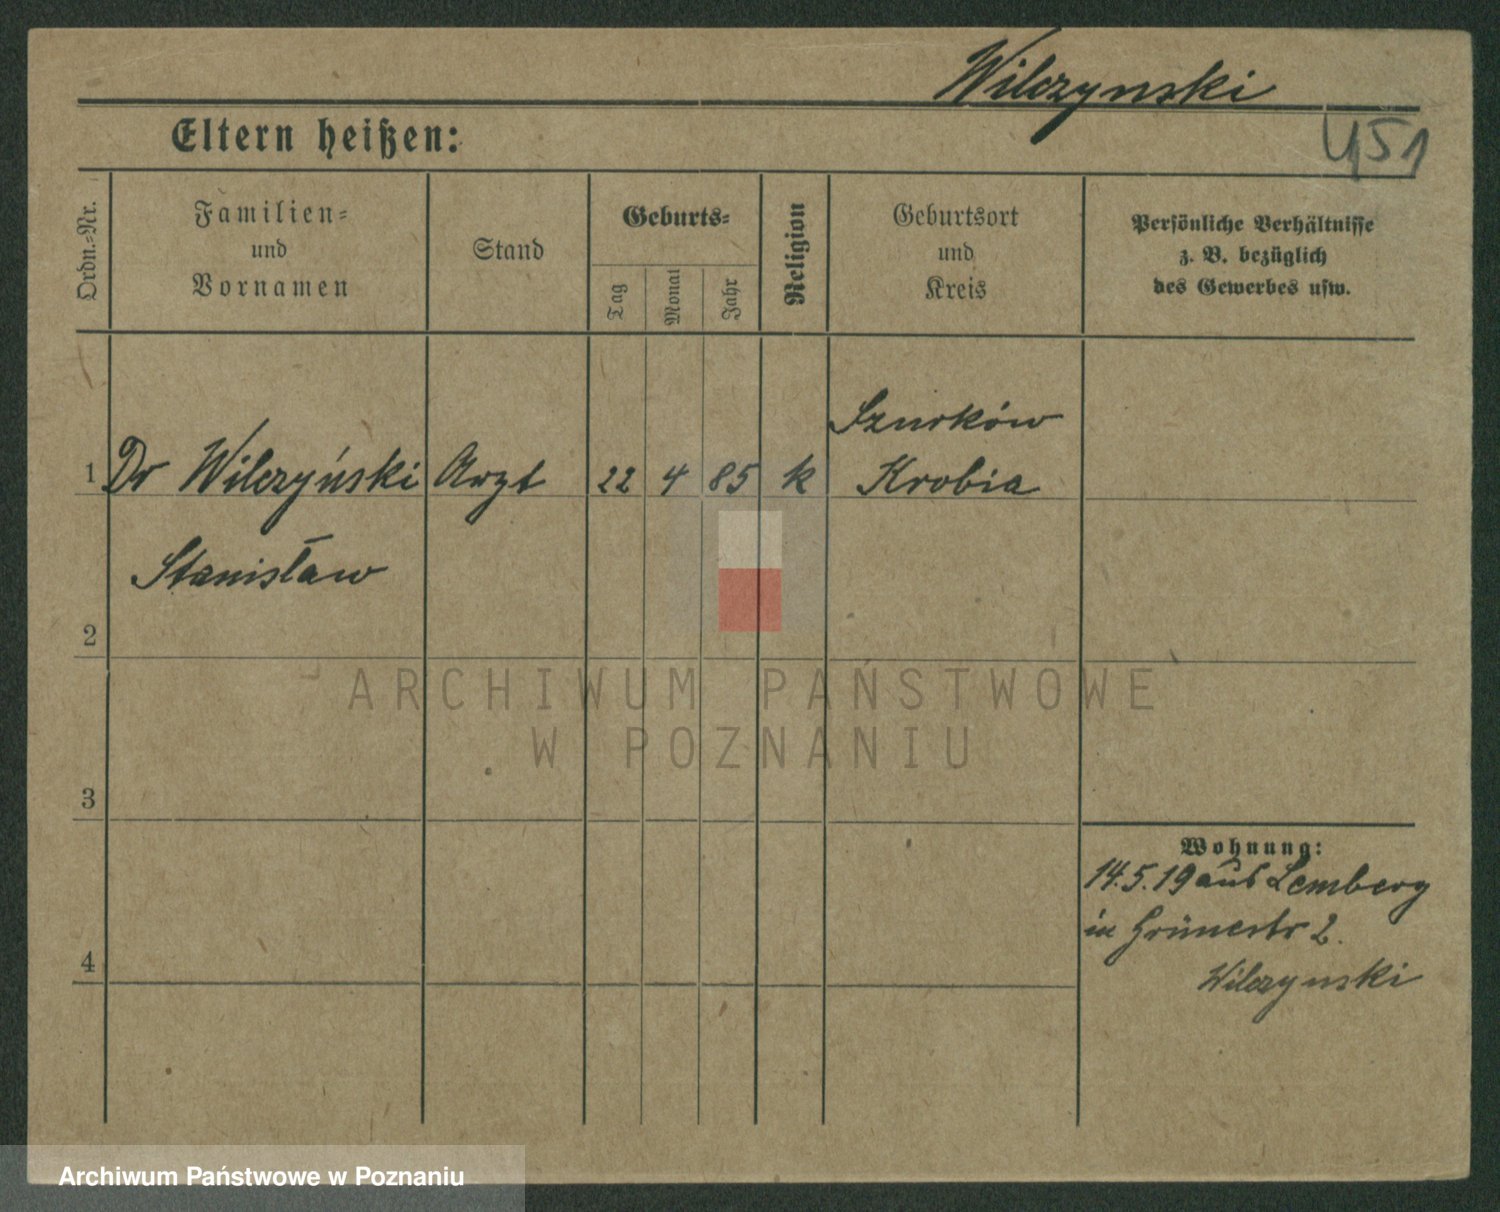 Wilczynski
Eltern heißen:
451
Ordn.=Nr.
Familien=
und
Vornamen
Stand
Geburts=
Tag
Monat
Jahr
Religion
Geburtsort
und
Kreis
Persönliche Verhältnisse
z. B. bezüglich
des Gewerbes usw.
Szurków
1 Dr Wilczyński Arzt 22 4 85 k Krobia
Stanisław
2
ARCHIWUM PAŃSTWOWE
W POZNANIU
3
Wohnung:
14.5.19 aus Lemberg
in Grünestr 2.
4
Wilczynski
Archiwum Państwowe w Poznaniu